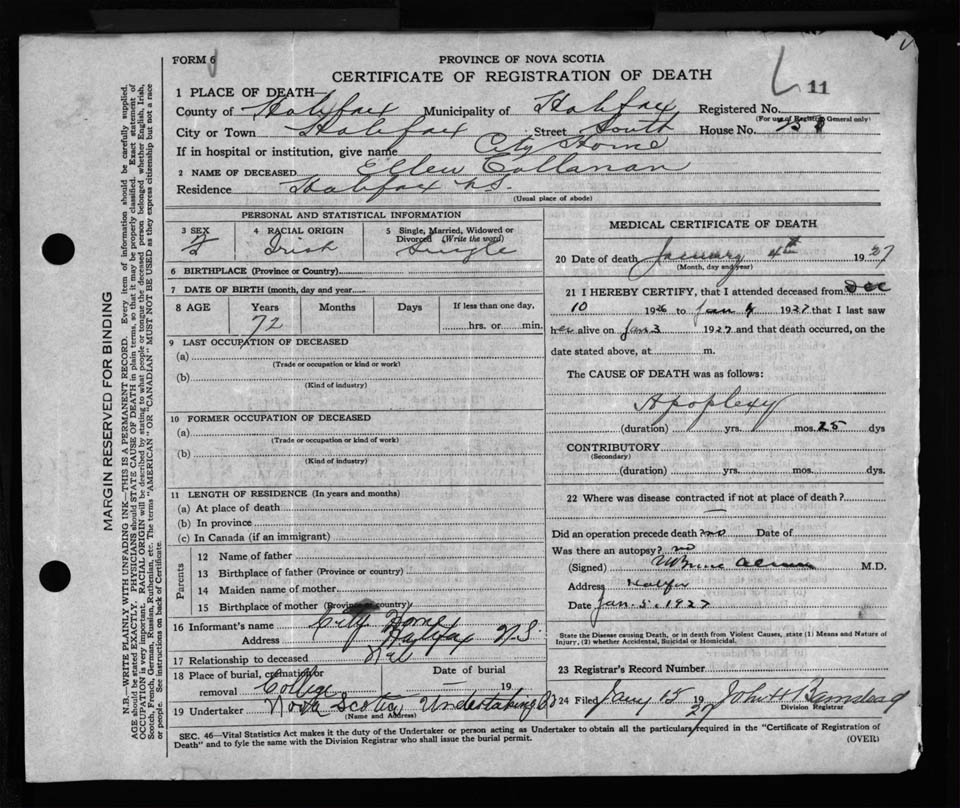 FORM 6
PROVINCE OF NOVA SCOTIA
CERTIFICATE OF REGISTRATION OF DEATH
11
1 PLACE OF DEATH—
County of Halifax Municipality of Halifax Registered No.
(For use of Registrar General only)
City or Town Halifax Street South House No.
If in hospital or institution, give name City Home
2 NAME OF DECEASED Ellen Callanan
Residence Halifax N.S.
(Usual place of abode)
PERSONAL AND STATISTICAL INFORMATION
3 SEX 4 RACIAL ORIGIN 5 Single, Married, Widowed or Divorced (Write the word)
F Irish Single
6 BIRTHPLACE (Province or Country)
7 DATE OF BIRTH (month, day and year)
8 AGE Years Months Days If less than one day,
72 hrs. or min.
9 LAST OCCUPATION OF DECEASED
(a)
(Trade or occupation or kind or work)
(b)
(Kind of industry)
10 FORMER OCCUPATION OF DECEASED
(a)
(Trade or occupation or kind of work)
(b)
(Kind of industry)
11 LENGTH OF RESIDENCE (In years and months)
(a) At place of death
(b) In province
(c) In Canada (if an immigrant)
Parents
12 Name of father
13 Birthplace of father (Province or country)
14 Maiden name of mother
15 Birthplace of mother (Province or country)
16 Informant's name City Home
Address Halifax N.S.
17 Relationship to deceased
18 Place of burial, cremation or removal College Date of burial — 19
19 Undertaker Nova Scotia Undertaking Co
(Name and Address)
MEDICAL CERTIFICATE OF DEATH
20 Date of death January 4th 1927
(Month, day and year)
21 I HEREBY CERTIFY, that I attended deceased from Dec
10 1926 to Jan 4 1927 that I last saw
her alive on Jan 3 1927 and that death occurred, on the
date stated above, at m.
The CAUSE OF DEATH was as follows:
Apoplexy
(duration) yrs. mos. 25 dys
CONTRIBUTORY
(Secondary)
(duration) yrs. mos. dys.
22 Where was disease contracted if not at place of death?
—
Did an operation precede death? no Date of
Was there an autopsy? no
(Signed) M.D.
Address Halifax
Date Jan. 5. 1927
State the Disease causing Death, or in death from Violent Causes, state (1) Means and Nature of
Injury, (2) whether Accidental, Suicidal or Homicidal.
23 Registrar's Record Number
24 Filed Jany 15 1927 John H Barnstead
Division Registrar
SEC. 46—Vital Statistics Act makes it the duty of the Undertaker or person acting as Undertaker to obtain all the particulars required in the "Certificate of Registration of
Death" and to fyle the same with the Division Registrar who shall issue the burial permit.
(OVER)
MARGIN RESERVED FOR BINDING
N.B.—WRITE PLAINLY WITH UNFADING INK—THIS IS A PERMANENT RECORD. Every item of information should be carefully supplied.
AGE should be stated EXACTLY. PHYSICIANS should STATE CAUSE OF DEATH in plain terms, so that it may be properly classified. Exact statement of
OCCUPATION is very important. RACIAL ORIGIN will be described by stating to what people or tongue the deceased person belonged whether English, Irish,
Scotch, French, German, Russian, Ruthenian, etc. The terms "AMERICAN" OR "CANADIAN" MUST NOT BE USED as they express citizenship but not a race
or people. See instructions on back of Certificate.